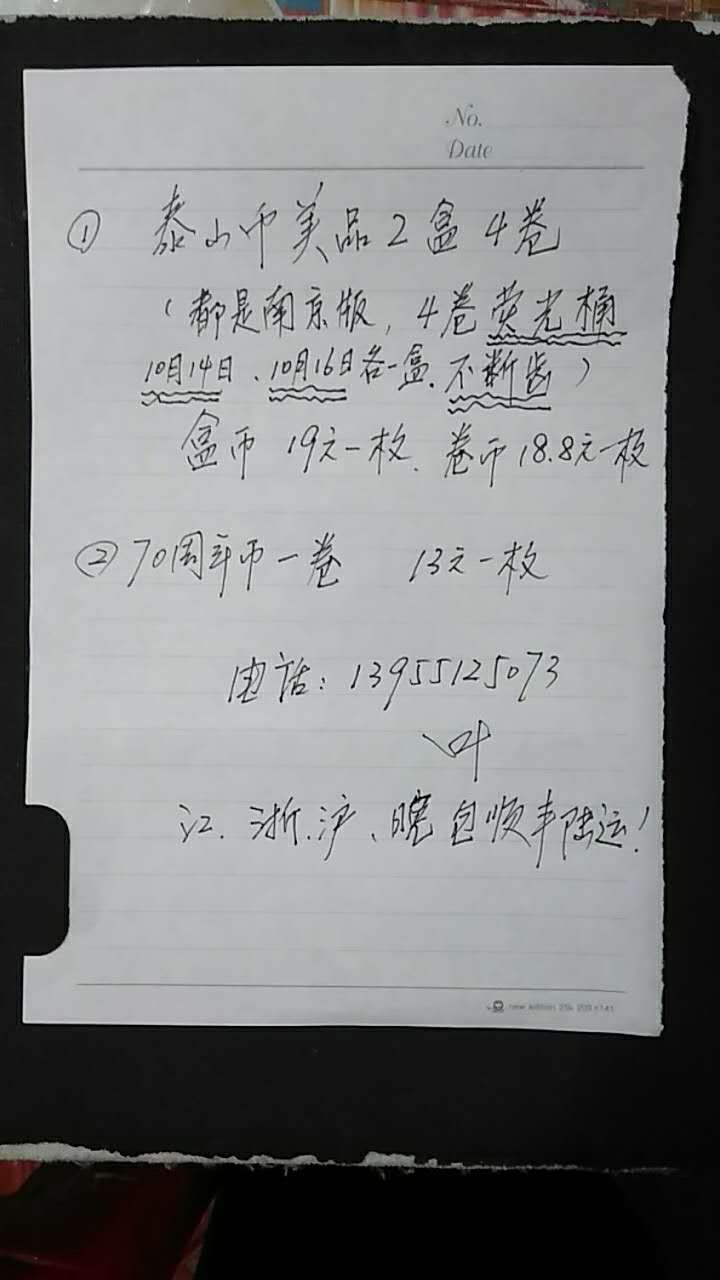 No.
Date
① 泰山币美品2盒4卷
（都是南京版，4卷荧光桶
10月14日、10月16日各一盒、不断齿）
盒币 19元一枚、卷币18.8元一枚
② 70周年币一卷 13元一枚
电话：13955125073
叶
江、浙、沪、皖包顺丰陆运！